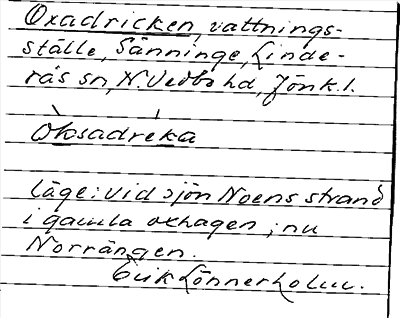 Oxadricken, vattnings-
ställe, Sänninge, Linde-
rås sn, N. Vedbo hd, Jönk. l.
oksadreka
Läge: vid sjön Noens strand
i gamla oxhagen, nu
Norrängen.
Erik Lönnerholm.